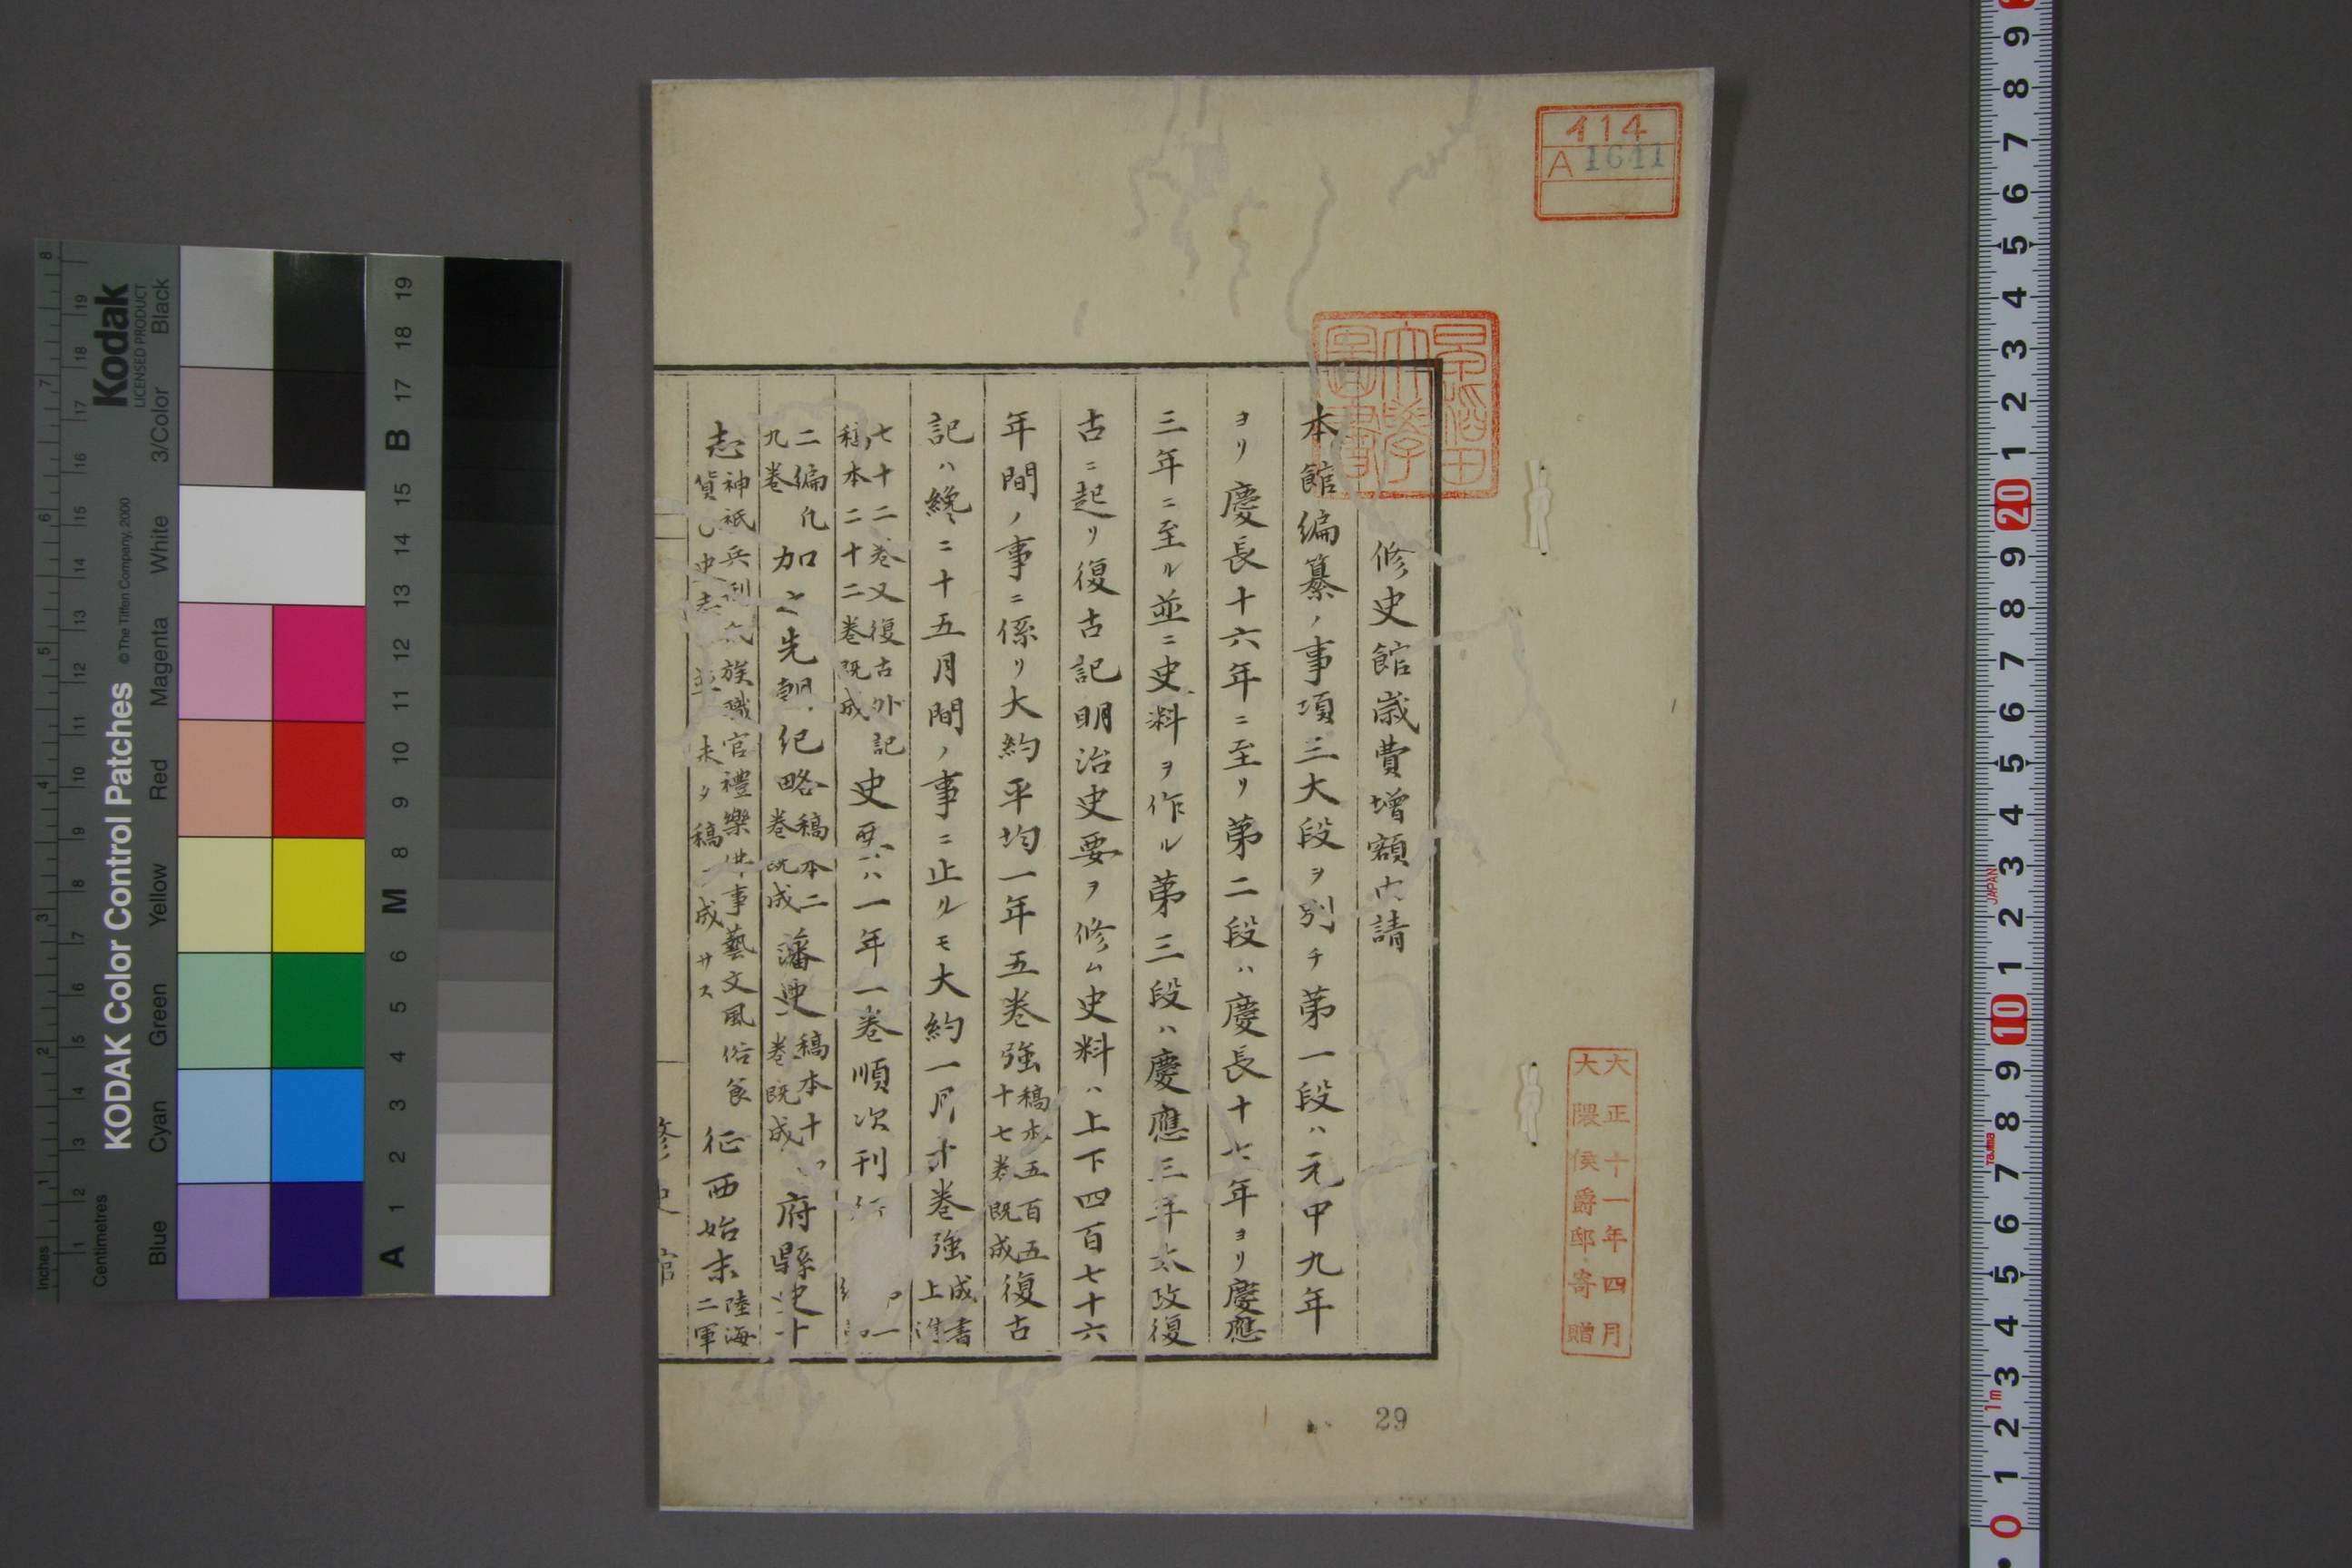 イ14
A 1641
早稲田
大學
圖書
大正十一年四月
大隈侯爵邸寄贈
修史館歳費増額内請
本館編纂ノ事項三大段ヲ別チ第一段ハ元中九年
ヨリ慶長十六年ニ至リ第二段ハ慶長十七年ヨリ慶應
三年ニ至ル並ニ史料ヲ作ル第三段ハ慶應三年大政復
古ニ起リ復古記明治史要ヲ修ム史料ハ上下四百七十六
年間ノ事ニ係リ大約平均一年五巻強
稿本五百五
十七巻既成
復古
記ハ纔ニ十五月間ノ事ニ止ルモ大約一月十巻強
成書
上進
七十二巻又復古外記
稿本二十二巻既成
史要ハ一年一巻順次刊行
二編凡
九巻
加之先朝紀略
稿本二
巻既成
藩史
稿本十
巻既成
府縣史十
志
神祇兵刑氏族職官禮樂 事藝文風俗食
貨 史志 未タ稿 成サス
征西始末
陸海
二軍
修史館
29
KODAK Color Control Patches
©The Tiffen Company, 2000
Kodak
LICENSED PRODUCT
Inches
Centimetres
Blue Cyan Green Yellow Red Magenta White 3/Color Black
A 1 2 3 4 5 6 M 8 9 10 11 12 13 14 15 B 17 18 19
JAPAN
Tajima
1m